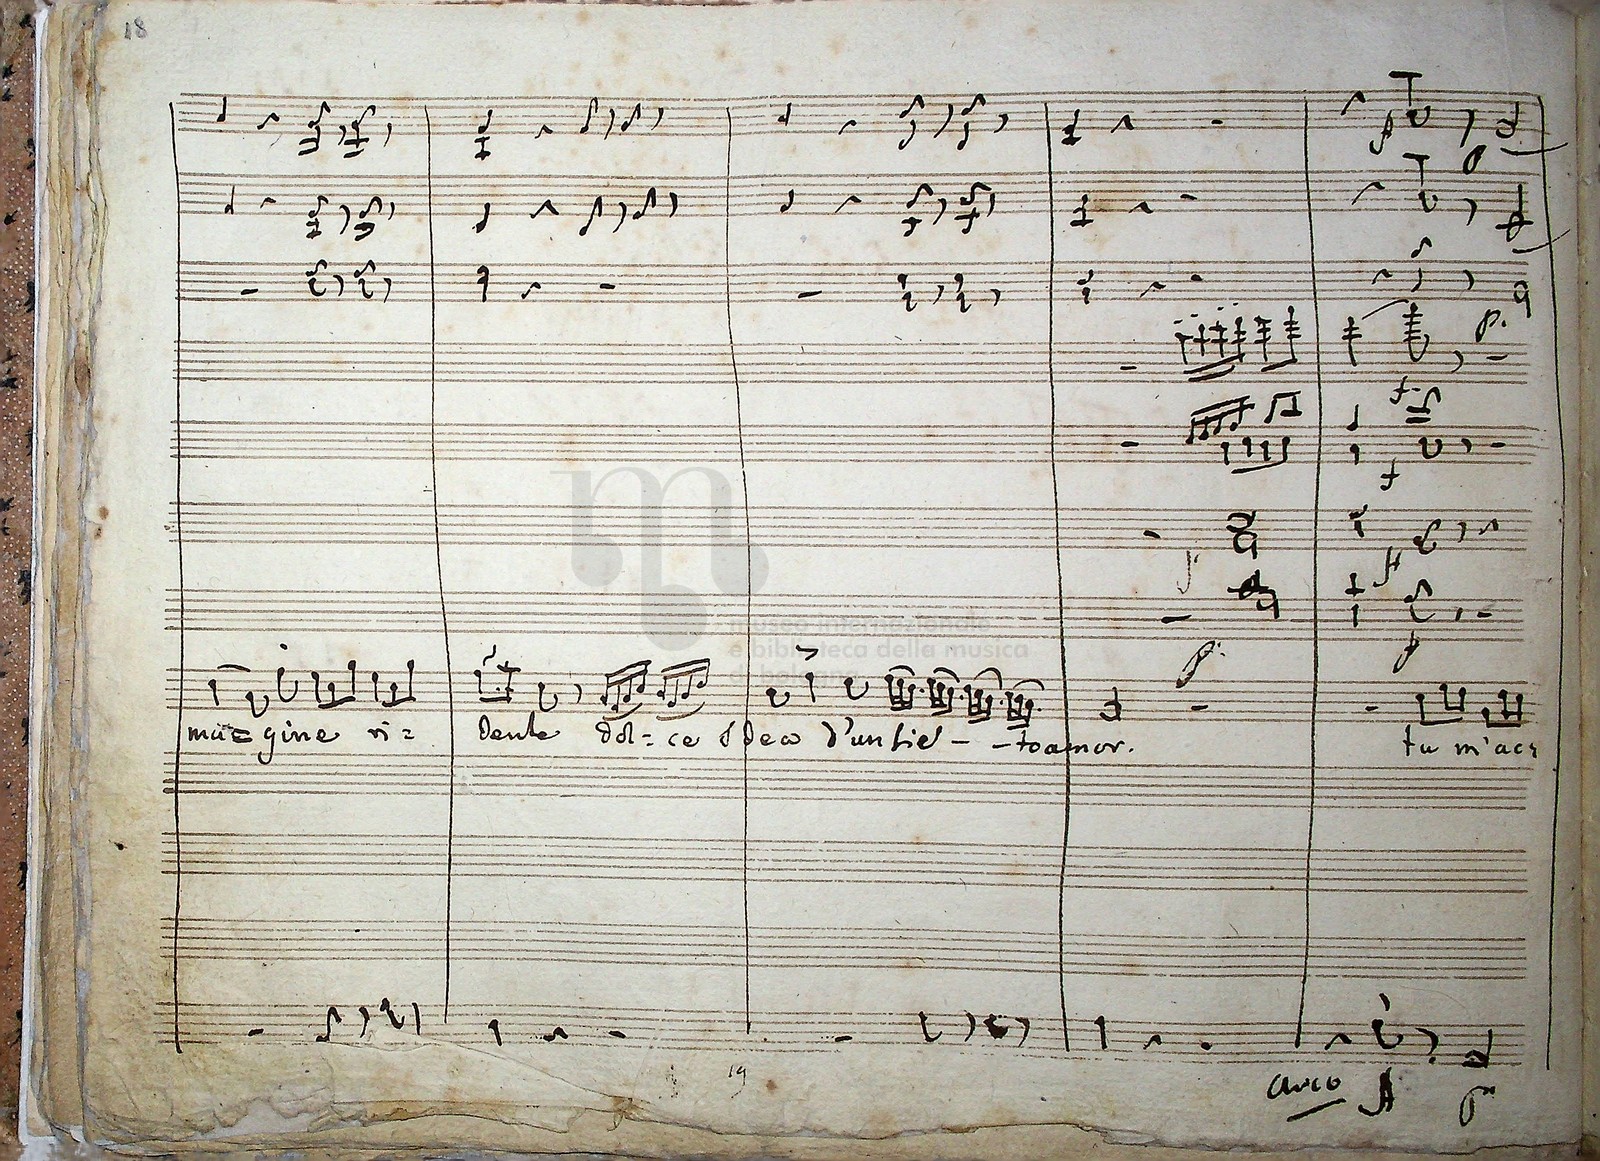 18
museo internazionale
e biblioteca della musica
di bologna
ma= gine ri= dente dol= ce idea d'un lie - - to amor. tu m'acc
19
arco